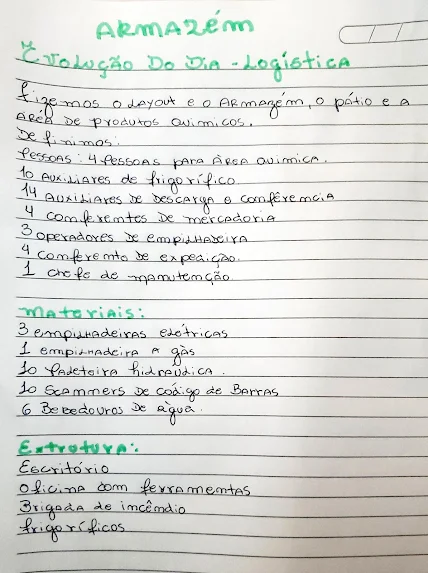 ARMAZÉM
Evolução Do Dia - Logística
Fizemos o Layout e o ARmazém, o pátio e a
ÁREA DE PRODUTOS QUIMICOS.
Definimos:
Pessoas: 4 Pessoas PARA ÁREA QUIMICA.
10 AUXILIARES de frigorífico
14 AUXILIARES DE DESCARGA e conferência
4 conferentes DE MERCADORIA
3 operadores de EMPILHADEIRA
4 conferente de expedição.
1 chefe de manutenção
Materiais:
3 empilhadeiras elétricas
1 empilhadeira a gás
10 Paleteira hidraúdica.
10 Scanners De código de BARRAS
6 Bebedouros De água.
Estrotura:
Escritório
Oficina com ferramentas
Brigada de incêndio
frigoríficos